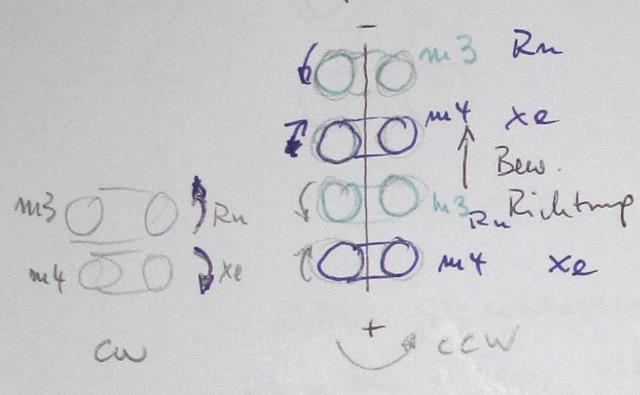 -
m3 Rn
m4 xe
Bew.
m3 Rn Richtung
m4 xe
+
CCW
m3 Rn
m4 xe
CW